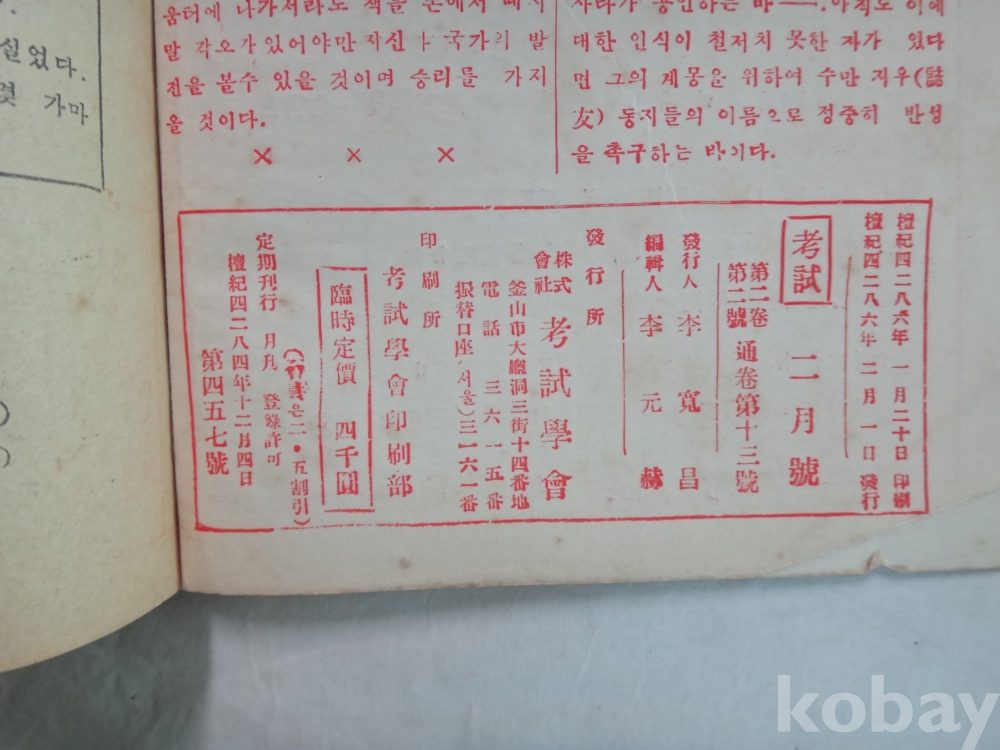 설었다.
몇 가마
말 각오가 있어야만 자신과 국가의 발
전을 볼수 있을 것이며 승리를 가지
올 것이다.
× × ×
대한 인식이 철저치 못한 자가 있다
면 그의 계몽을 위하여 수만 지우(誌
友) 동지들의 이름으로 정중히 반성
을 촉구하는 바이다.
檀紀四二八六年 一月二十日 印刷
檀紀四二八六年 二月一日 發行
考試 二月號
第二卷 第二號 通卷第十三號
發行人 李寬昌
編輯人 李元赫
發行所
株式會社 考試學會
釜山市大廳洞三街十四番地
電話 三六一五番
振替口座(서울)三一六一番
印刷所
考試學會印刷部
臨時定價 四千圓
은二·五割引)
定期刊行 月刊 登錄許可
檀紀四二八四年十二月四日
第四五七號
kobay